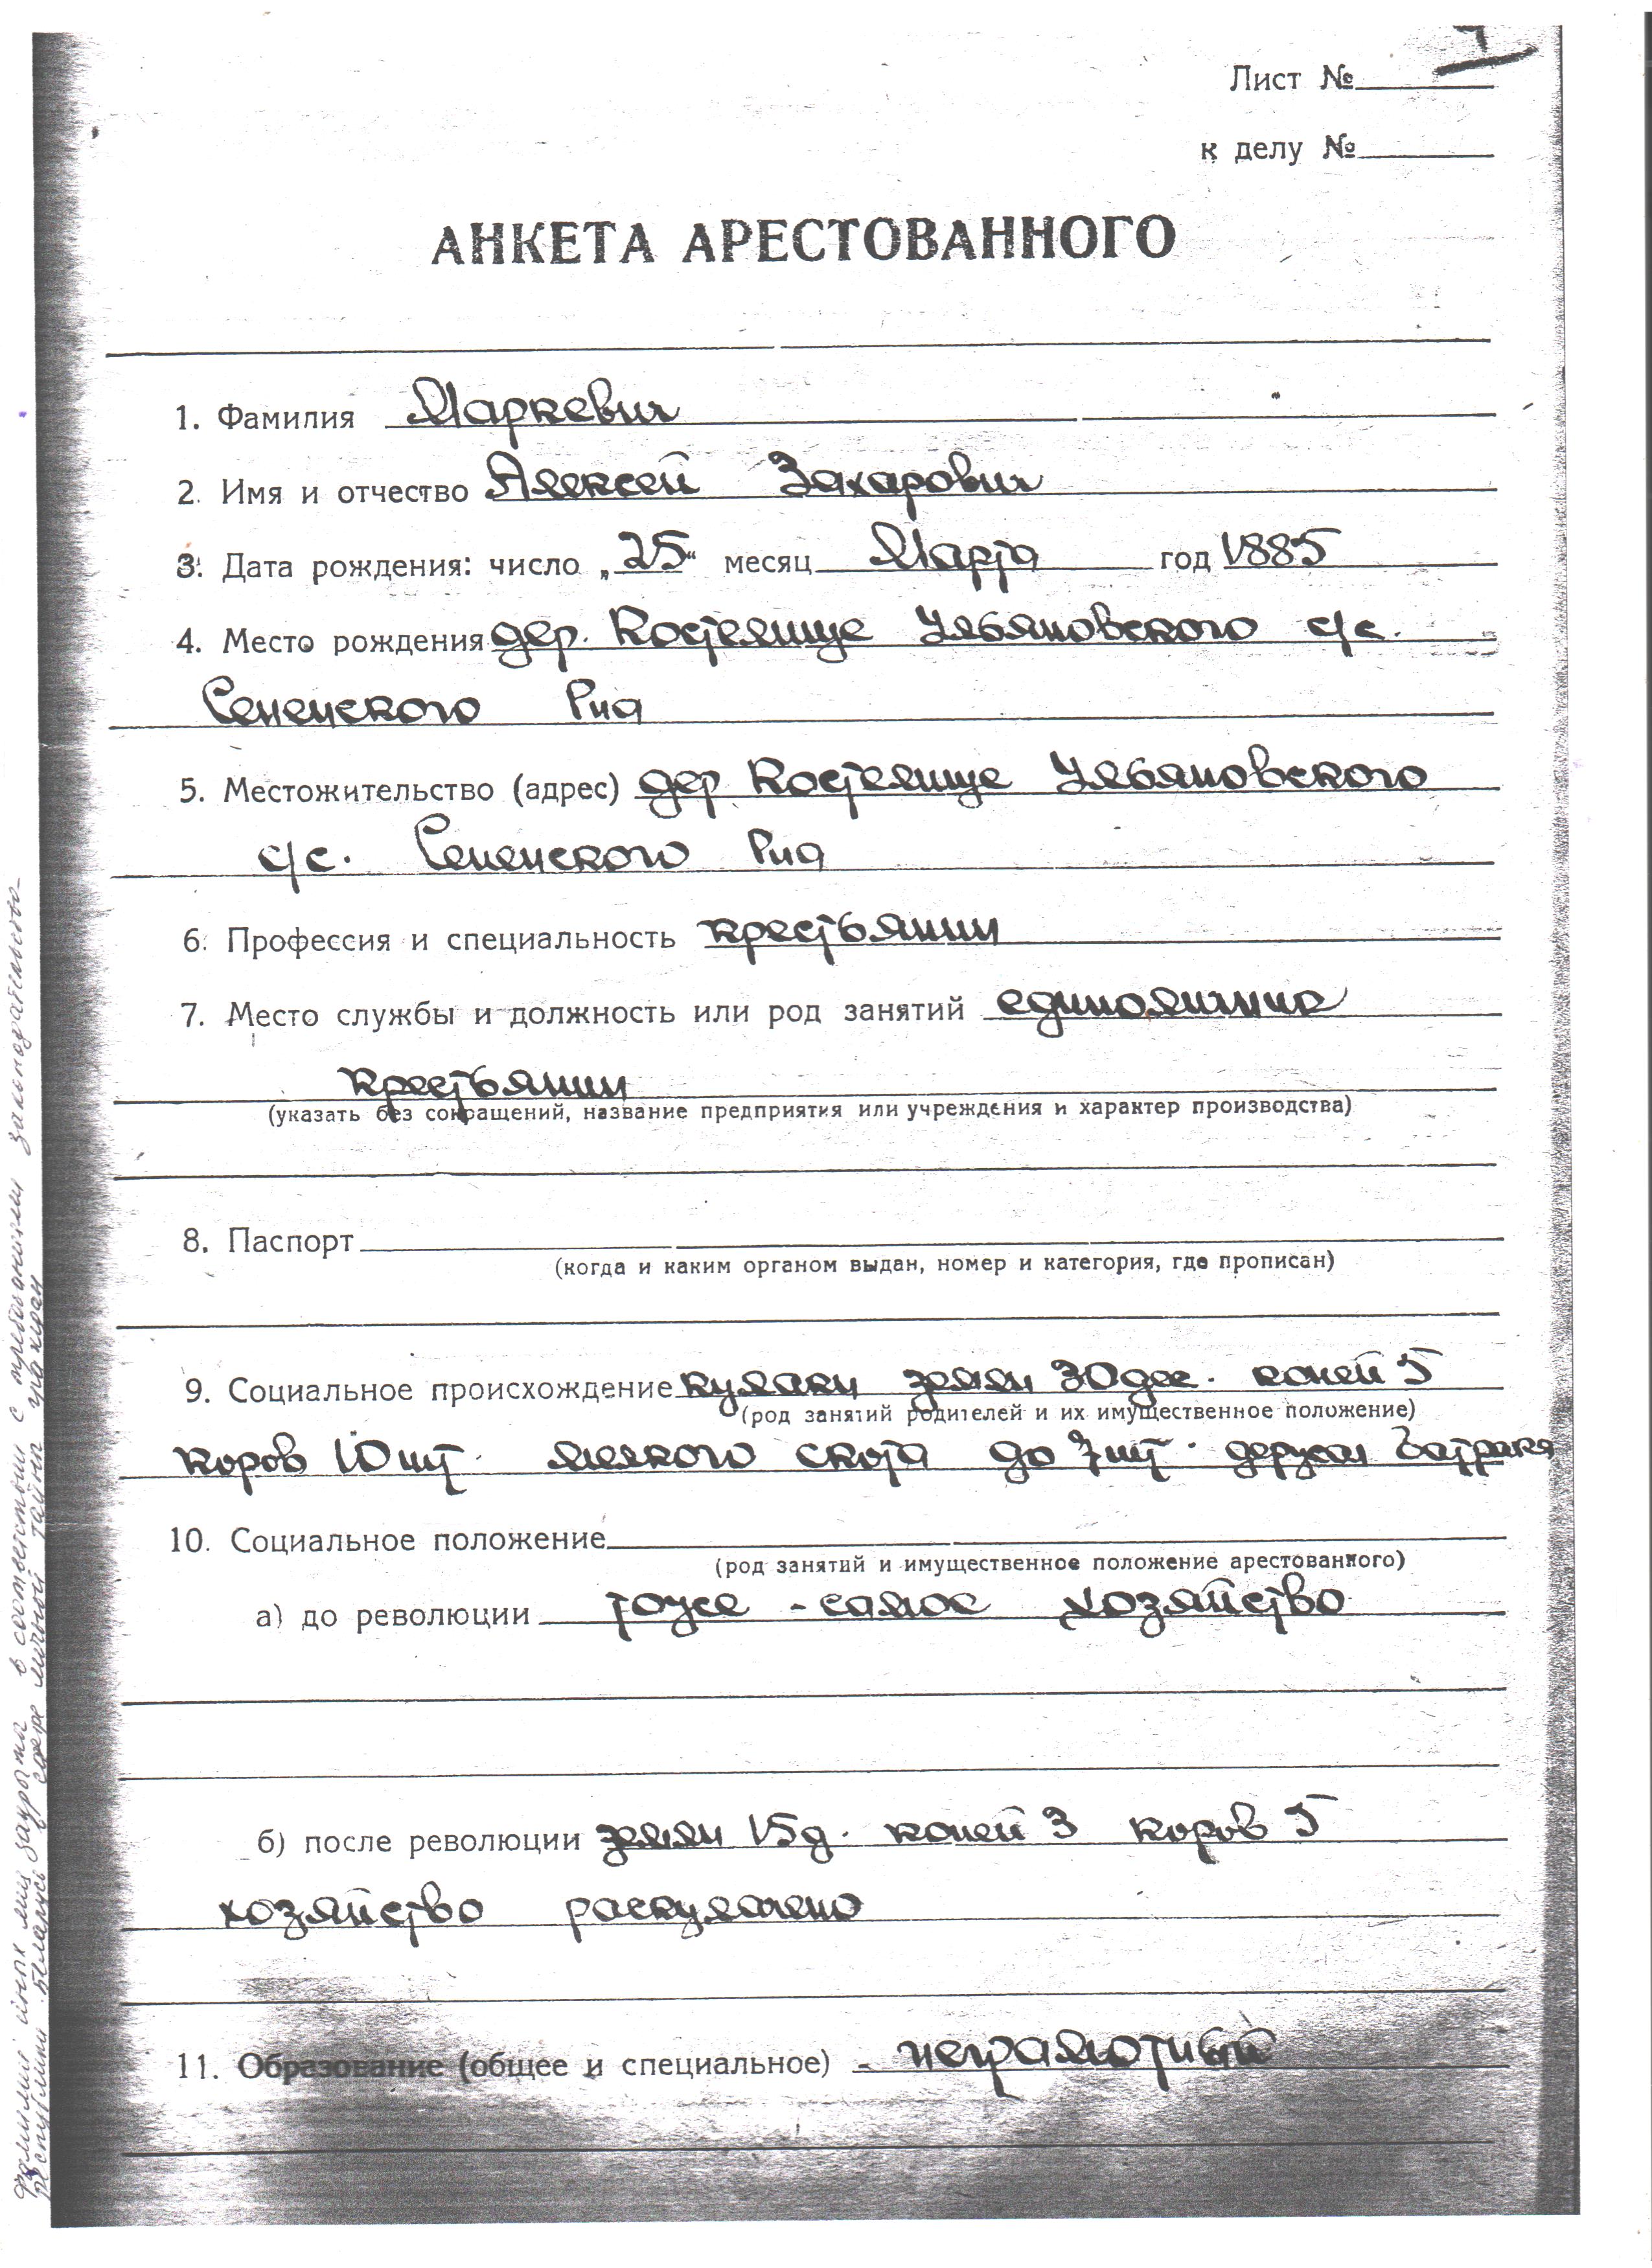 Лист №
к делу №
АНКЕТА АРЕСТОВАННОГО
1. Фамилия Маркевич
2. Имя и отчество Алексей Захарович
3. Дата рождения: число „25“ месяц Марта год 1885
4. Место рождения дер. Костелище Ульяновского с/с.
Сененского Р-на
5. Местожительство (адрес) дер Костелище Ульяновского
с/с. Сененского Р-на
6. Профессия и специальность крестьянин
7. Место службы и должность или род занятий единоличник
крестьянин
(указать без сокращений, название предприятия или учреждения и характер производства)
8. Паспорт
(когда и каким органом выдан, номер и категория, где прописан)
9. Социальное происхождение кулаки земли 30 дес. коней 5
(род занятий родителей и их имущественное положение)
коров 10 шт. мелкого скота до 7 шт. держал батрака
10. Социальное положение
(род занятий и имущественное положение арестованного)
а) до революции тоже - самое хозяйство
б) после революции земли 15 д. коней 3 коров 5
хозяйство раскулачено
11. Образование (общее и специальное) - неграмотный
Фамилии иных лиц закрыты в соответствии с требованиями законодательства
республики Беларусь в сфере личной тайны граждан